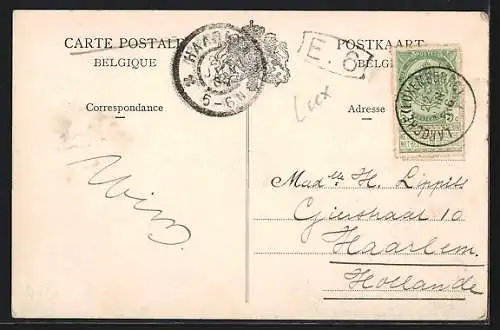 CARTE POSTALE
BELGIQUE
POSTKAART
BELGIË
Correspondance
Adresse
HAARLEM
5-6N
E. 6
Lux
LAROCHE (LUXEMBOURG)
Wim.
Madlle H. Lippits
Giestraat 10
Haarlem.
Hollande